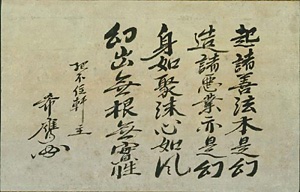 起諸善法本是幻
造諸悪業亦是幻
身如聚沫心如風
幻出無根無實性
把不住軒主
希膺